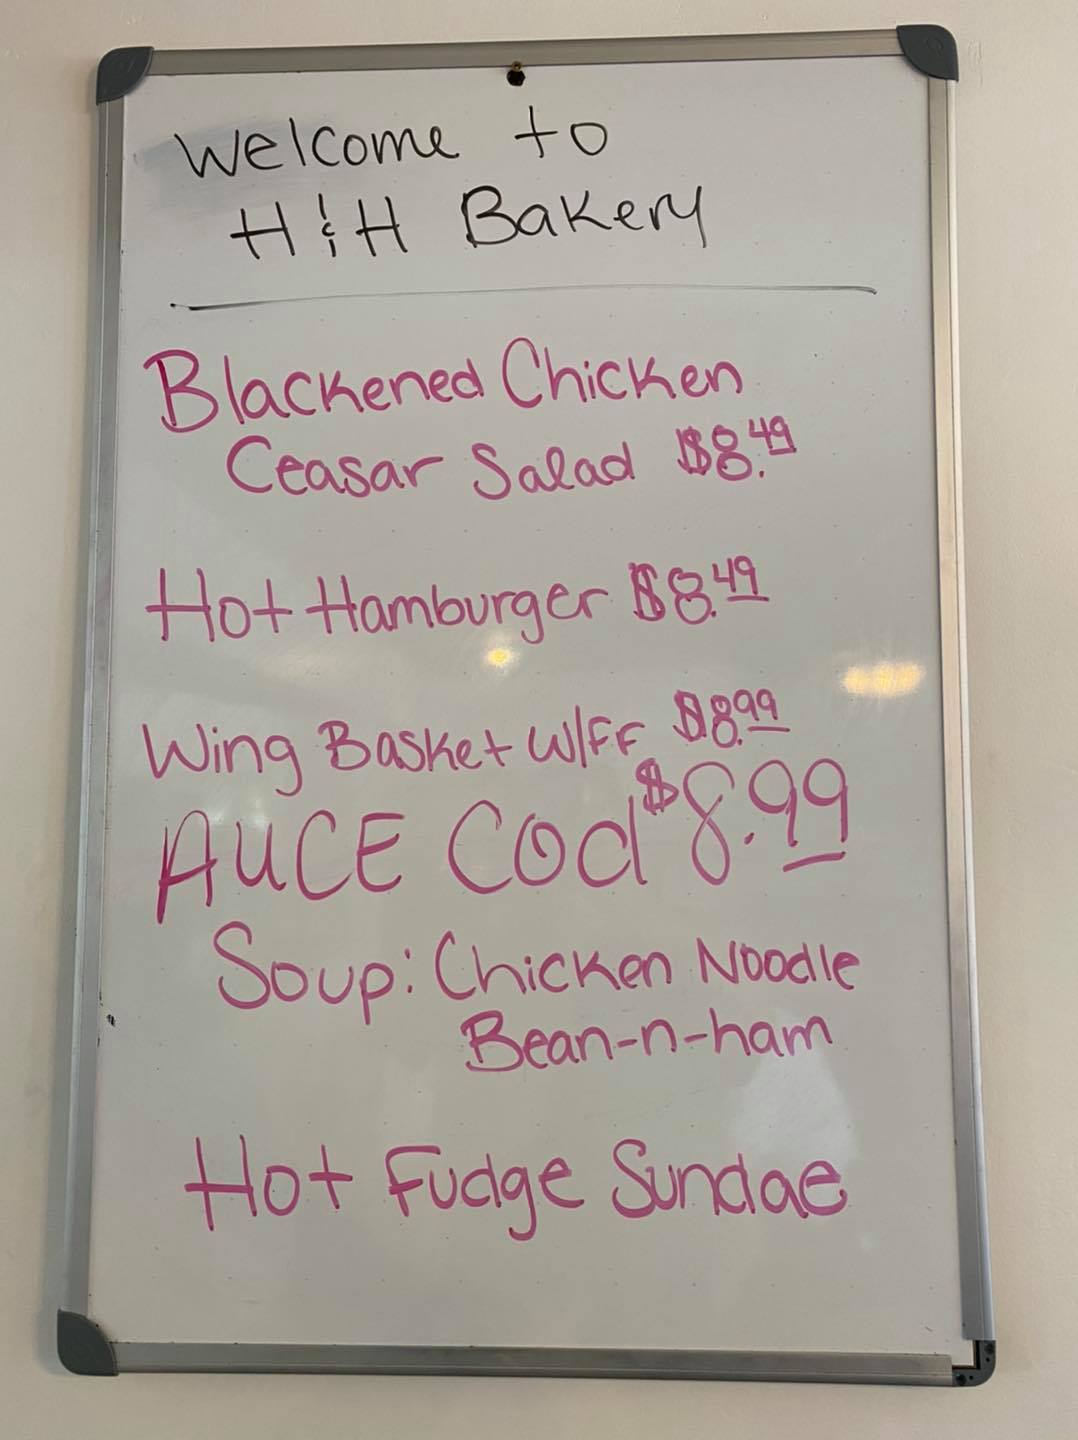 Welcome to
H & H Bakery
Blackened Chicken
Ceasar Salad $8.49
Hot Hamburger $8.49
Wing Basket W/FF $8.99
AUCE Cod $8.99
Soup: Chicken Noodle
Bean-n-ham
Hot Fudge Sundae